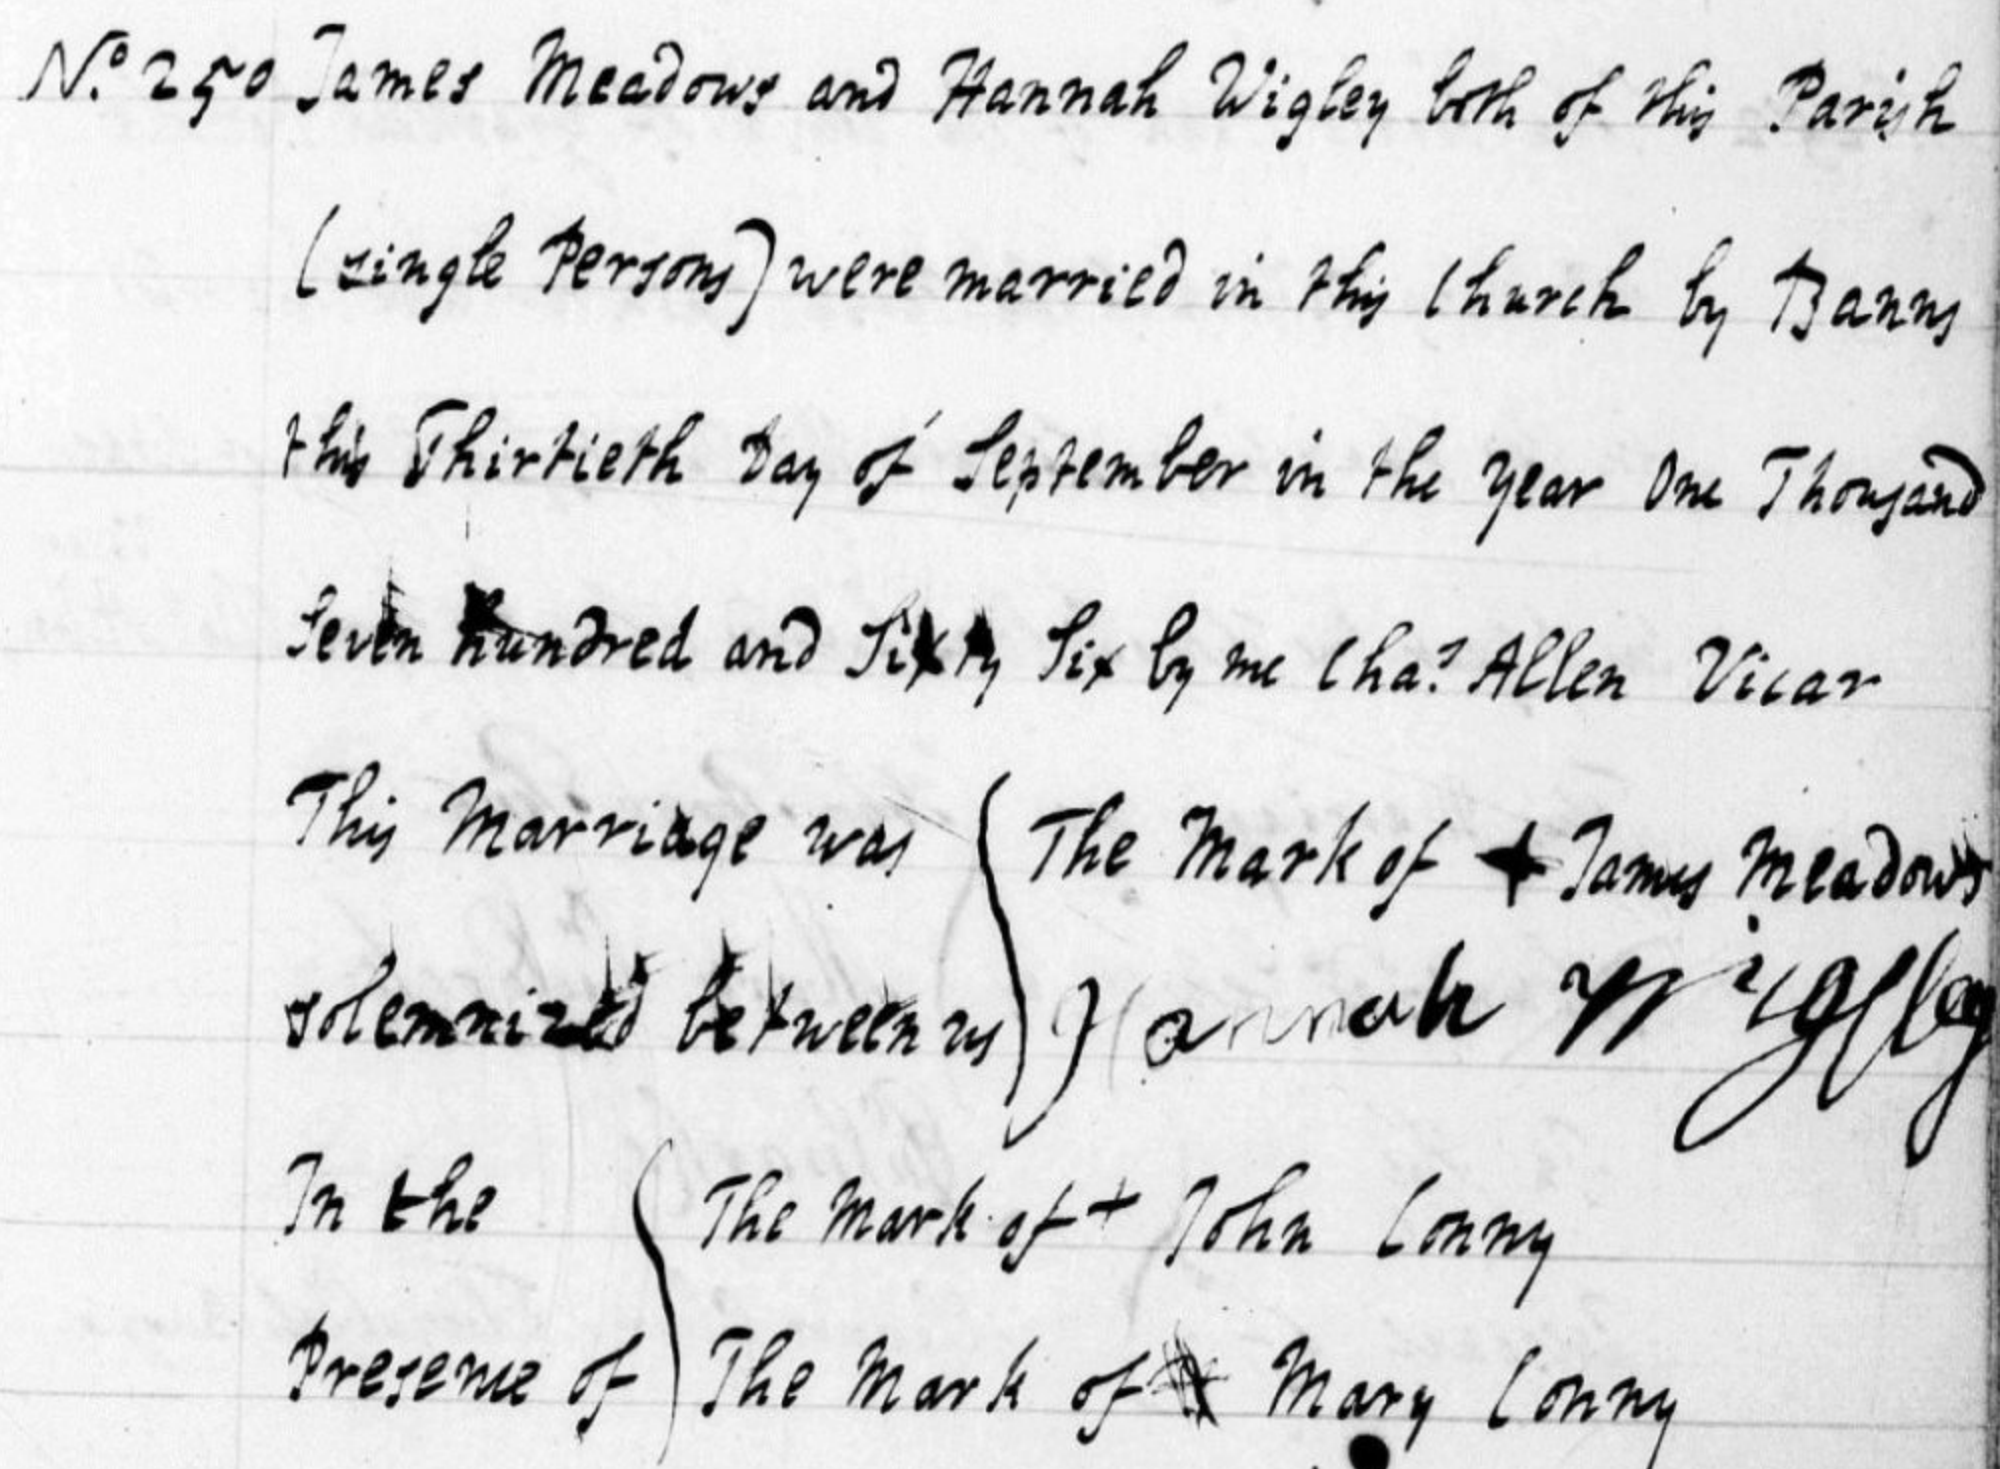 No. 250 James Meadows and Hannah Wigley both of this Parish
(single Persons) were married in this Church by Banns
this Thirtieth Day of September in the year One Thousand
Seven hundred and Sixty Six by me Chas. Allen Vicar
This Marriage was The Mark of + James Meadows
solemnized between us Hannah Wigley
In the The Mark of + John Conny
Presence of The Mark of x Mary Conny